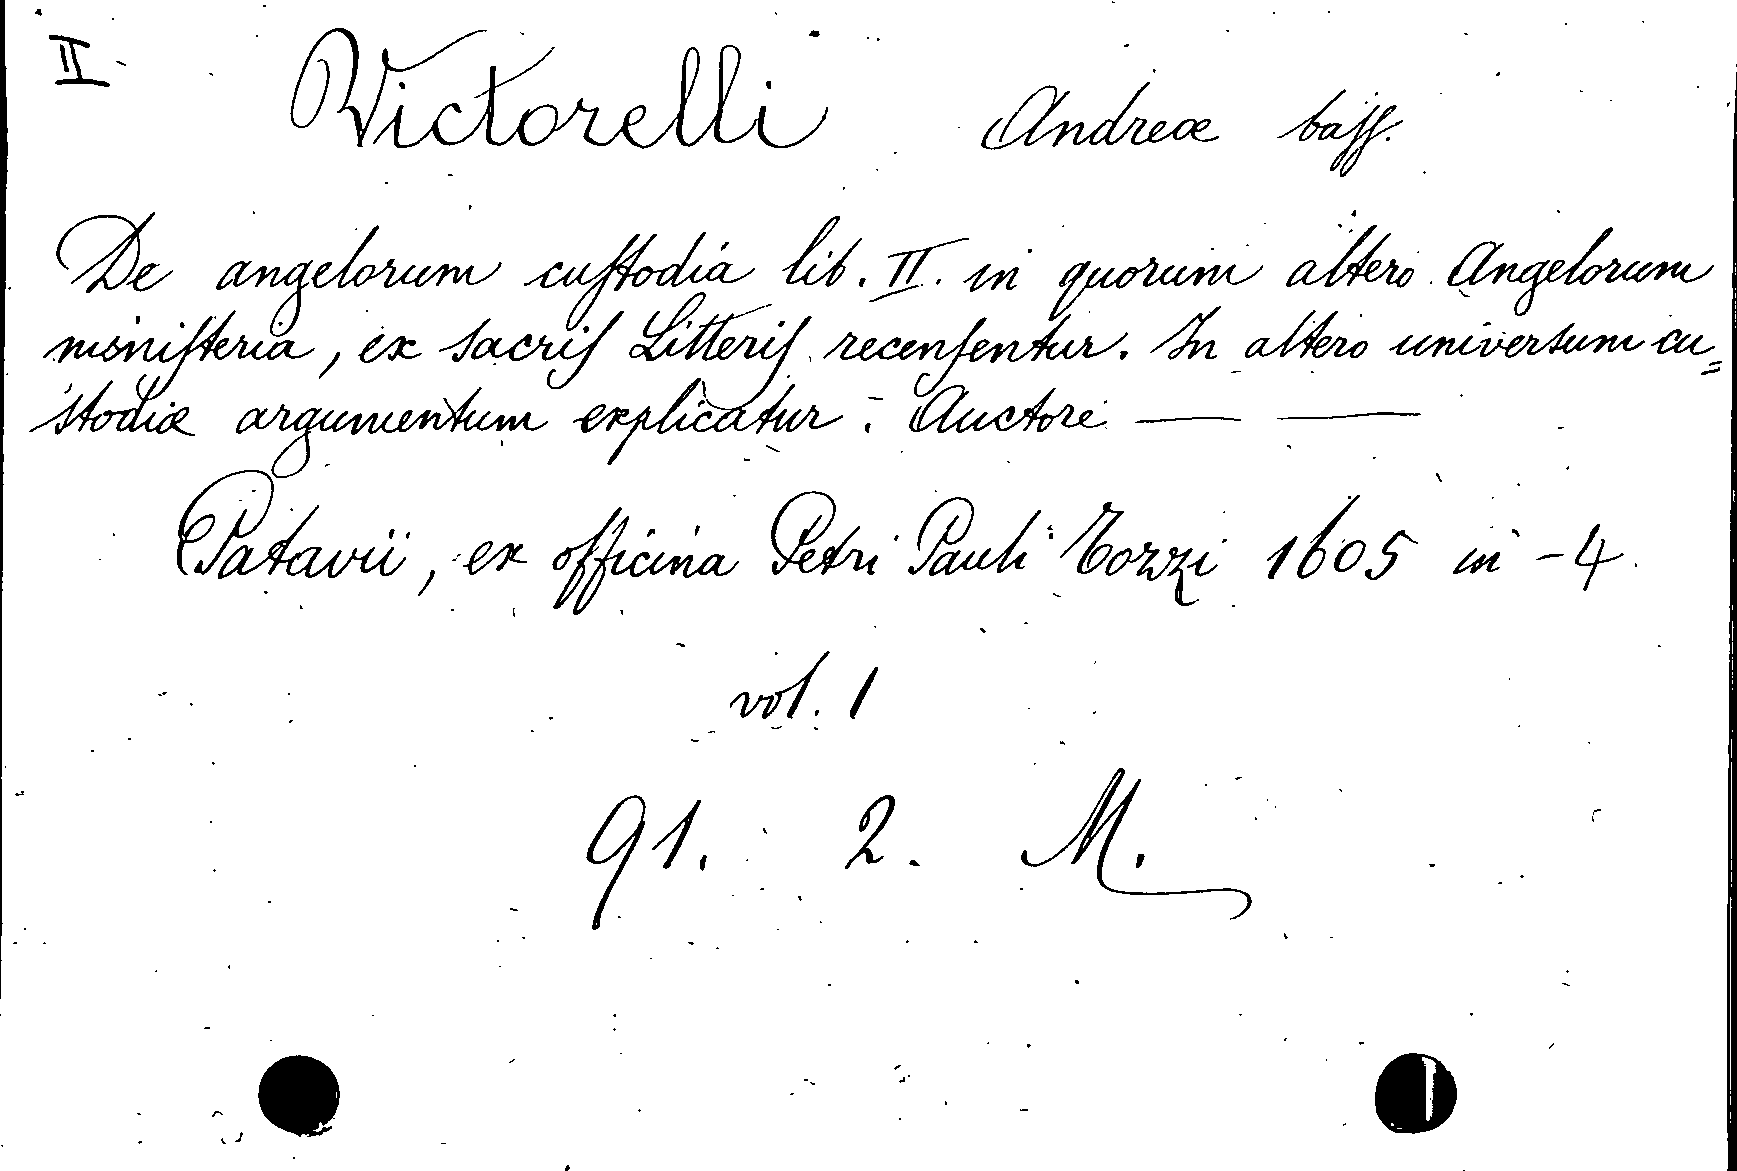 II
Victorelli Andreæ bass.
De angelorum custodia lib. II. in quorum altero Angelorum
ministeria, ex sacris Litteris recensentur. In altero universum cu=
stodiæ argumentum explicatur. Auctore — —
Patavii, ex officina Petri Pauli Tozzi 1605 in -4
vol. 1
91. 2. M.